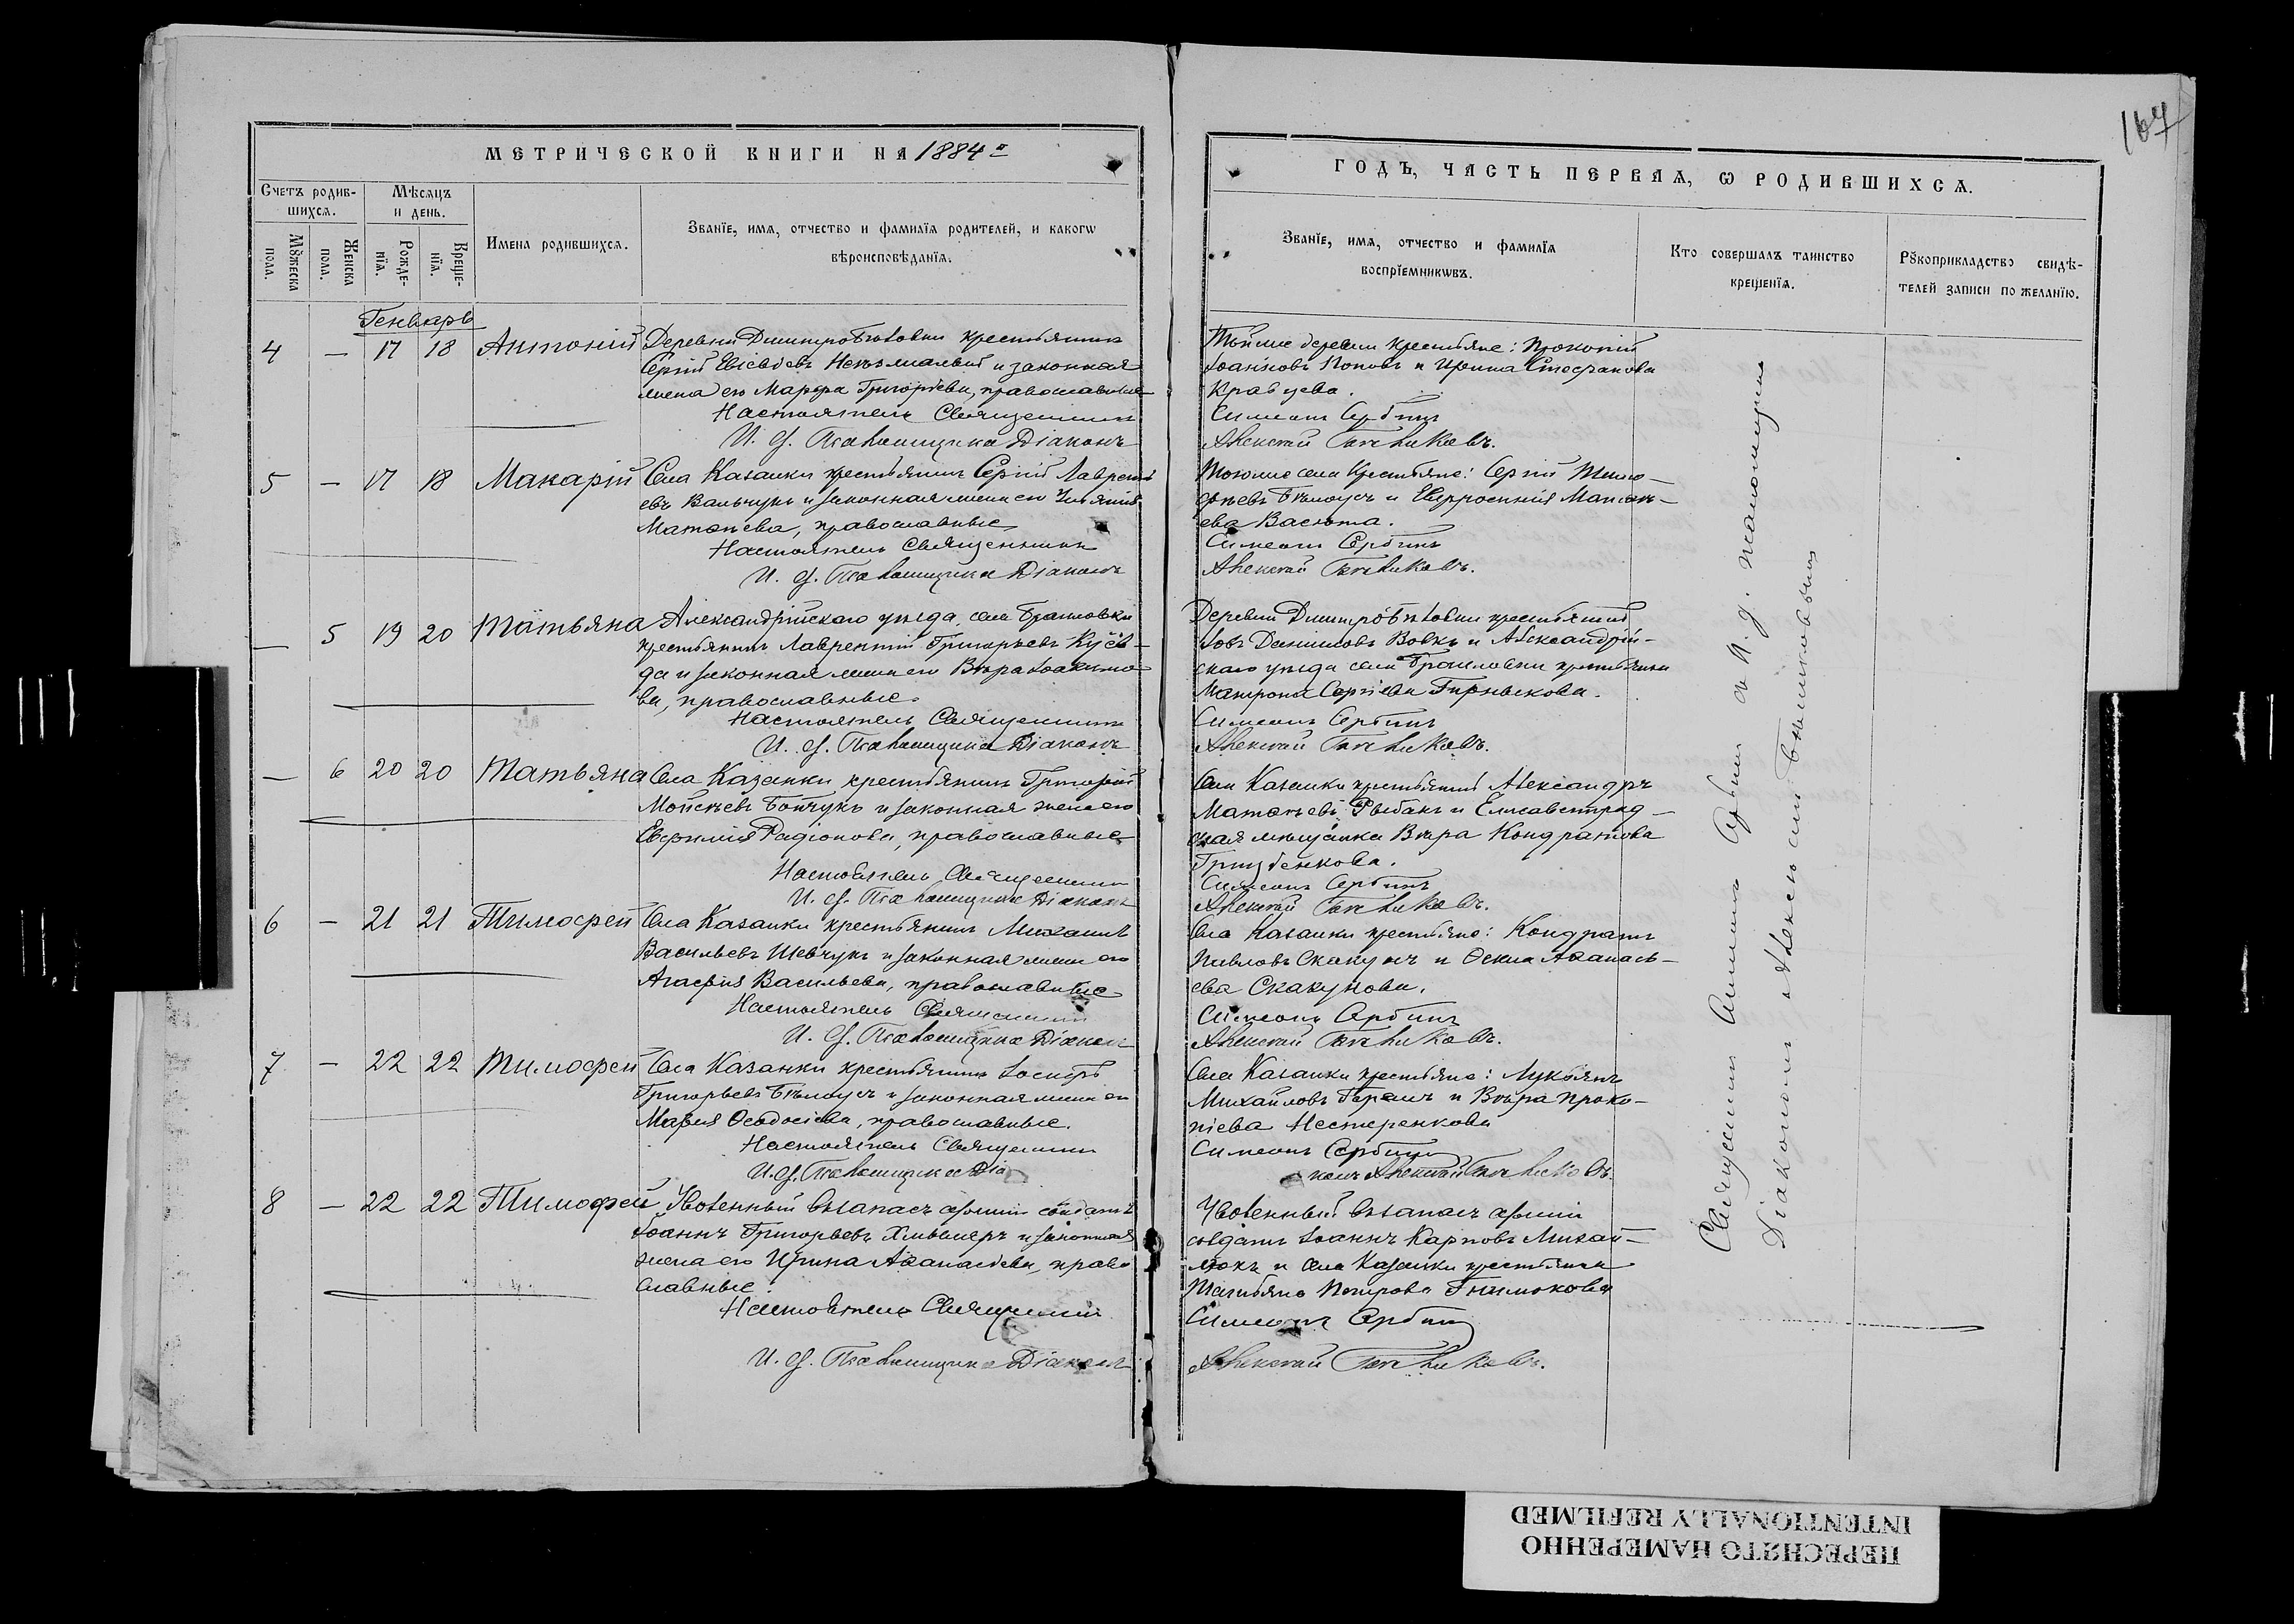 167
МЕТРИЧЕСКОЙ КНИГИ НА 1884й
ГОДЪ, ЧАСТЬ ПЕРВАЯ, Ѡ РОДИВШИХСѦ.
Счетъ родив-
шихсѧ.
Мѣсяцъ
и день.
Мꙋжеска
пола.
Женска
пола.
Рожде-
нїѧ.
Креще-
нїѧ.
Имена родившихсѧ.
Званїе, имѧ, отчество и фамилїѧ родителей, и какогѡ
вѣроисповѣданїѧ.
Званїе, имѧ, отчество и фамилїѧ
воспрїемникѡвъ.
Кто совершалъ таинство
крещенїѧ.
Рꙋкоприкладство свидѣ-
телей записи по желанїю.
Генварь
4 — 17 18 Антоній
Деревни крестьянинъ
Сергій и законная
жена его Марфа Григорьева, православные
Настоятель Священникъ
И. д. Псаломщика Діаконъ
Тойже деревни крестьяне: Прокопій
Іоанновъ Поповъ и Ирина Стефанова
Кравцева.
Симеонъ Сербинъ
Алексѣй
5 — 17 18 Макарій
Села Казанки крестьянинъ Сергій Лаврентъ
евъ Вальчукъ и законная жена его
Матѳіева, православные
Настоятель Священникъ
И. д. Псаломщика Діаконъ
Тогоже села крестьяне: Сергій Тимо-
фѣевъ Бѣлоусъ и Евфросинія
ева Васюта.
Симеонъ Сербинъ
Алексѣй
— 5 19 20 Татьяна
Александрійскаго уѣзда, села
крестьянинъ Лаврентій Григорьевъ
да и законная жена его Вѣра Іоакимо
ва, православные.
Настоятель Священникъ
И. д. Псаломщика Діаконъ
Деревни крестьянинъ
Іовъ Даниловъ Вовкъ и Александрій-
скаго уѣзда села крестьянка
Матрона Сергіева
Симеонъ Сербинъ
Алексѣй
— 6 20 20 Татьяна
Села Казанки крестьянинъ Григорій
Мойсѣевъ Бойчукъ и законная жена его
Евфимія Радіонова, православные
Настоятель Священникъ
И. д. Псаломщика Діаконъ
Села Казанки крестьянинъ Александръ
Матѳѣевъ Рыбакъ и Елисаветград-
ская мѣщанка Вѣра Кондратова
Симеонъ Сербинъ
Алексѣй
6 — 21 21 Тимофей
Села Казанки крестьянинъ Михаилъ
Васильевъ Шевчукъ и законная жена его
Агафія Васильева, православные
Настоятель Священникъ
И. д. Псаломщика Діаконъ
Села Казанки крестьяне: Кондратъ
Павловъ Скакунъ и Ѳекла Аѳанась-
ева Скакунова.
Симеонъ Сербинъ
Алексѣй
7 — 22 22 Тимофей
Села Казанки крестьянинъ Іосифъ
Григорьевъ Бѣлоусъ и законная жена его
Марія Ѳеодосіева, православные.
Настоятель Священникъ
И. д. Псаломщика Діа
Села Казанки крестьяне: Лукьянъ
Михайловъ и Вѣра Проко-
піева Нестеренкова
Симеонъ Сербинъ
конъ Алексѣй
8 — 22 22 Тимофей
Уволенный въ запасъ арміи солдатъ
Іоаннъ Григорьевъ и законная
жена его Ирина Аѳанасіева, право
славные.
Настоятель Священникъ
И. д. Псаломщика Діаконъ
Уволенный въ запасъ арміи
солдатъ Іоаннъ Карповъ Михай-
люкъ и села Казанки крестьянка
Татьяна Петрова
Симеонъ Сербинъ
Алексѣй
Священникъ Симеонъ Сербинъ съ И. д. псаломщика
Діакономъ Алексѣемъ
ПЕРЕСНЯТО НАМЕРЕННО
INTENTIONALLY REFILMED